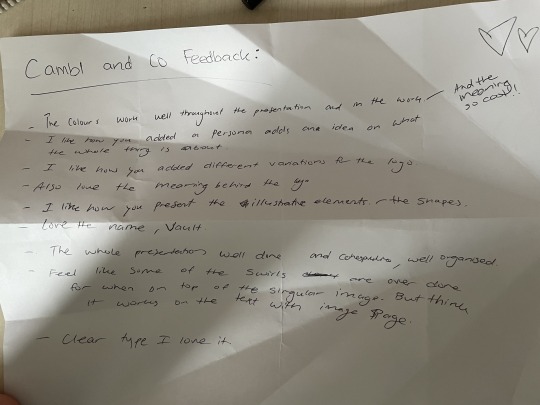 Cambl and Co Feedback:
- The Colours work well throughout the presentation and in the work.
And the
meaning
so cool!!
- I like how you added a persona adds an idea on what
the whole thing is about.
- I like how you added different variations for the logo
- Also love the meaning behind the logo
- I like how you present the illustrative elements / the shapes.
- Love the name, Vault.
- The whole presentation well done and, well organised
- Feel like some of the swirls are over done
for when on top of the singular image. But think
it works on the text with image page.
- Clear type I love it.